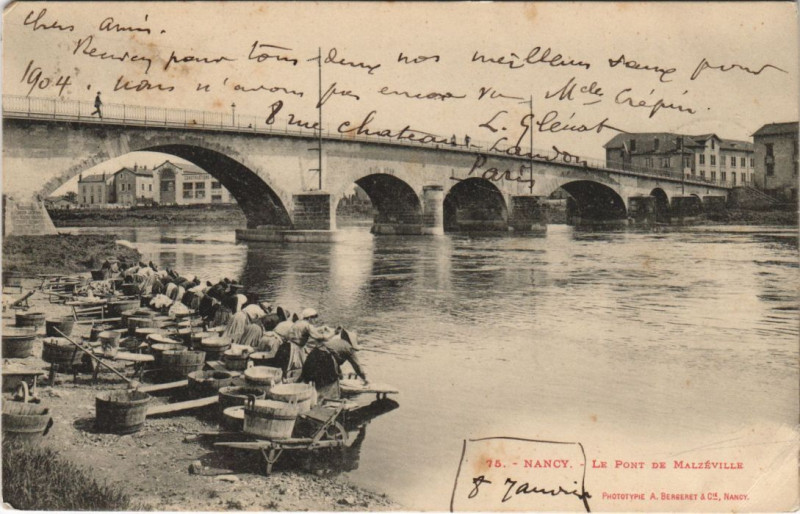 Chers amis.
Recevez pour tous deux nos meilleurs vœux pour
1904. nous n'avons pas encore vu Mde Crépin.
L. Glénat
8 rue chateau Landon
Paris
75. - NANCY. - LE PONT DE MALZÉVILLE
8 Janvier
PHOTOTYPIE A. BERGERET & Cie, NANCY.